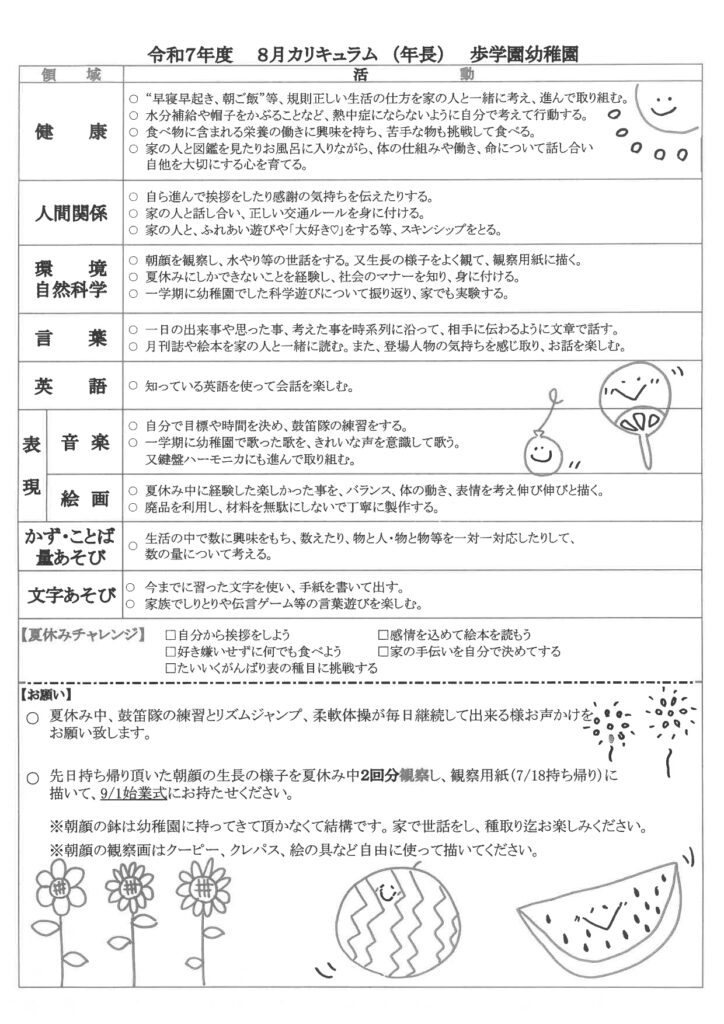 令和7年度　8月カリキュラム（年長）　歩学園幼稚園
領　域　活　動
健　康
○ “早寝早起き、朝ご飯”等、規則正しい生活の仕方を家の人と一緒に考え、進んで取り組む。
○ 水分補給や帽子をかぶることなど、熱中症にならないように自分で考えて行動する。
○ 食べ物に含まれる栄養の働きに興味を持ち、苦手な物も挑戦して食べる。
○ 家の人と図鑑を見たりお風呂に入りながら、体の仕組みや働き、命について話し合い
自他を大切にする心を育てる。
人間関係
○ 自ら進んで挨拶をしたり感謝の気持ちを伝えたりする。
○ 家の人と話し合い、正しい交通ルールを身に付ける。
○ 家の人と、ふれあい遊びや「大好き♡」をする等、スキンシップをとる。
環　境
自然科学
○ 朝顔を観察し、水やり等の世話をする。又生長の様子をよく観て、観察用紙に描く。
○ 夏休みにしかできないことを経験し、社会のマナーを知り、身に付ける。
○ 一学期に幼稚園でした科学遊びについて振り返り、家でも実験する。
言　葉
○ 一日の出来事や思った事、考えた事を時系列に沿って、相手に伝わるように文章で話す。
○ 月刊誌や絵本を家の人と一緒に読む。また、登場人物の気持ちを感じ取り、お話を楽しむ。
英　語
○ 知っている英語を使って会話を楽しむ。
表現
音　楽
○ 自分で目標や時間を決め、鼓笛隊の練習をする。
○ 一学期に幼稚園で歌った歌を、きれいな声を意識して歌う。
又鍵盤ハーモニカにも進んで取り組む。
絵　画
○ 夏休み中に経験した楽しかった事を、バランス、体の動き、表情を考え伸び伸びと描く。
○ 廃品を利用し、材料を無駄にしないで丁寧に製作する。
かず・ことば
量あそび
○ 生活の中で数に興味をもち、数えたり、物と人・物と物等を一対一対応したりして、
数の量について考える。
文字あそび
○ 今までに習った文字を使い、手紙を書いて出す。
○ 家族でしりとりや伝言ゲーム等の言葉遊びを楽しむ。
【夏休みチャレンジ】　□自分から挨拶をしよう　□感情を込めて絵本を読もう
□好き嫌いせずに何でも食べよう　□家の手伝いを自分で決めてする
□たいいくがんばり表の種目に挑戦する
【お願い】
○ 夏休み中、鼓笛隊の練習とリズムジャンプ、柔軟体操が毎日継続して出来る様お声かけを
お願い致します。
○ 先日持ち帰り頂いた朝顔の生長の様子を夏休み中2回分観察し、観察用紙（7/18持ち帰り）に
描いて、9/1始業式にお持たせください。
※朝顔の鉢は幼稚園に持ってきて頂かなくて結構です。家で世話をし、種取り迄お楽しみください。
※朝顔の観察画はクーピー、クレパス、絵の具など自由に使って描いてください。